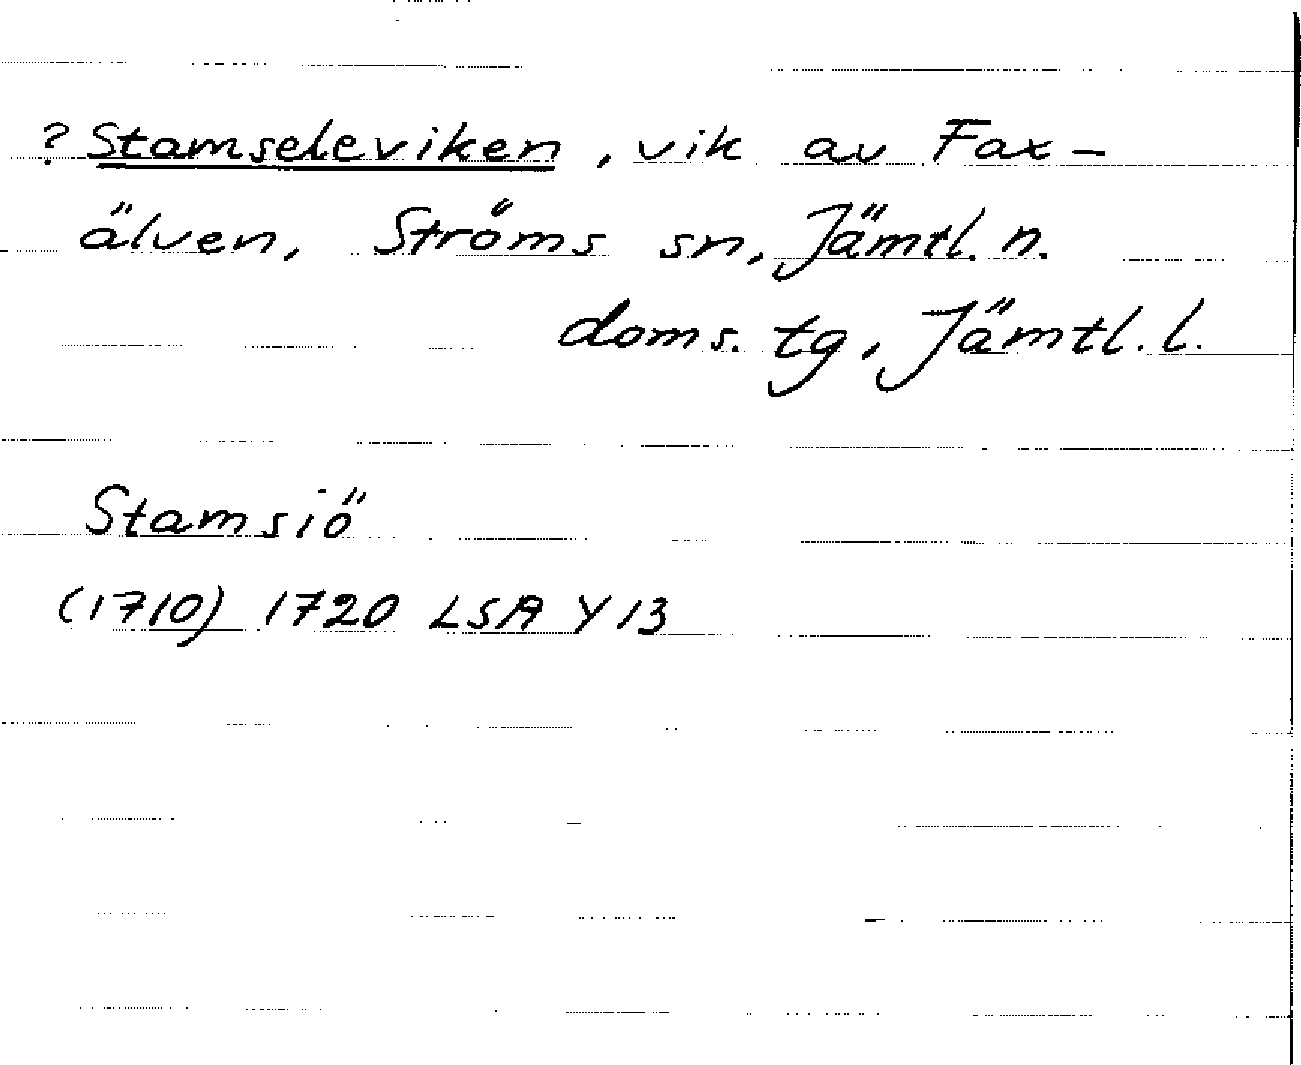 ? Stamseleviken, vik av Fax-
älven, Ströms sn, Jämtl. n.
doms. tg, Jämtl. l.
Stamsiö
(1710) 1720 LSA Y 13